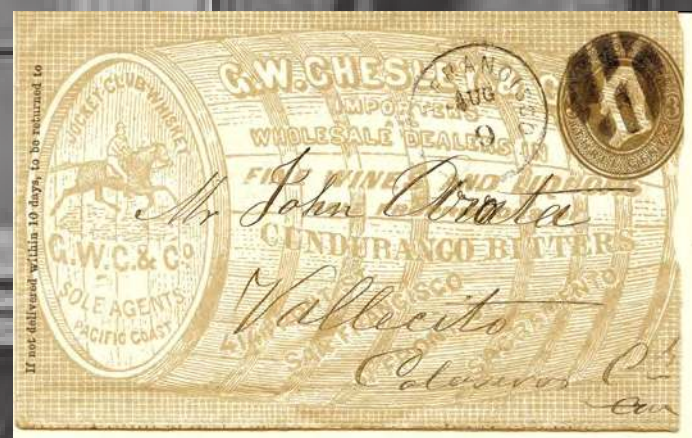 If not delivered within 10 days, to be returned to
JOCKEY-CLUB-WHISKEY
G.W.C. & Co
SOLE AGENTS
PACIFIC COAST
G.W. CHESLEY & C
IMPORTERS
AND
WHOLESALE DEALERS IN
FINE WINES AND LIQUORS
CUNDURANGO BITTERS
SAN FRANCISCO
SACRAMENTO
AUG
9
Mr John Arata
Vallecito
Calaveras